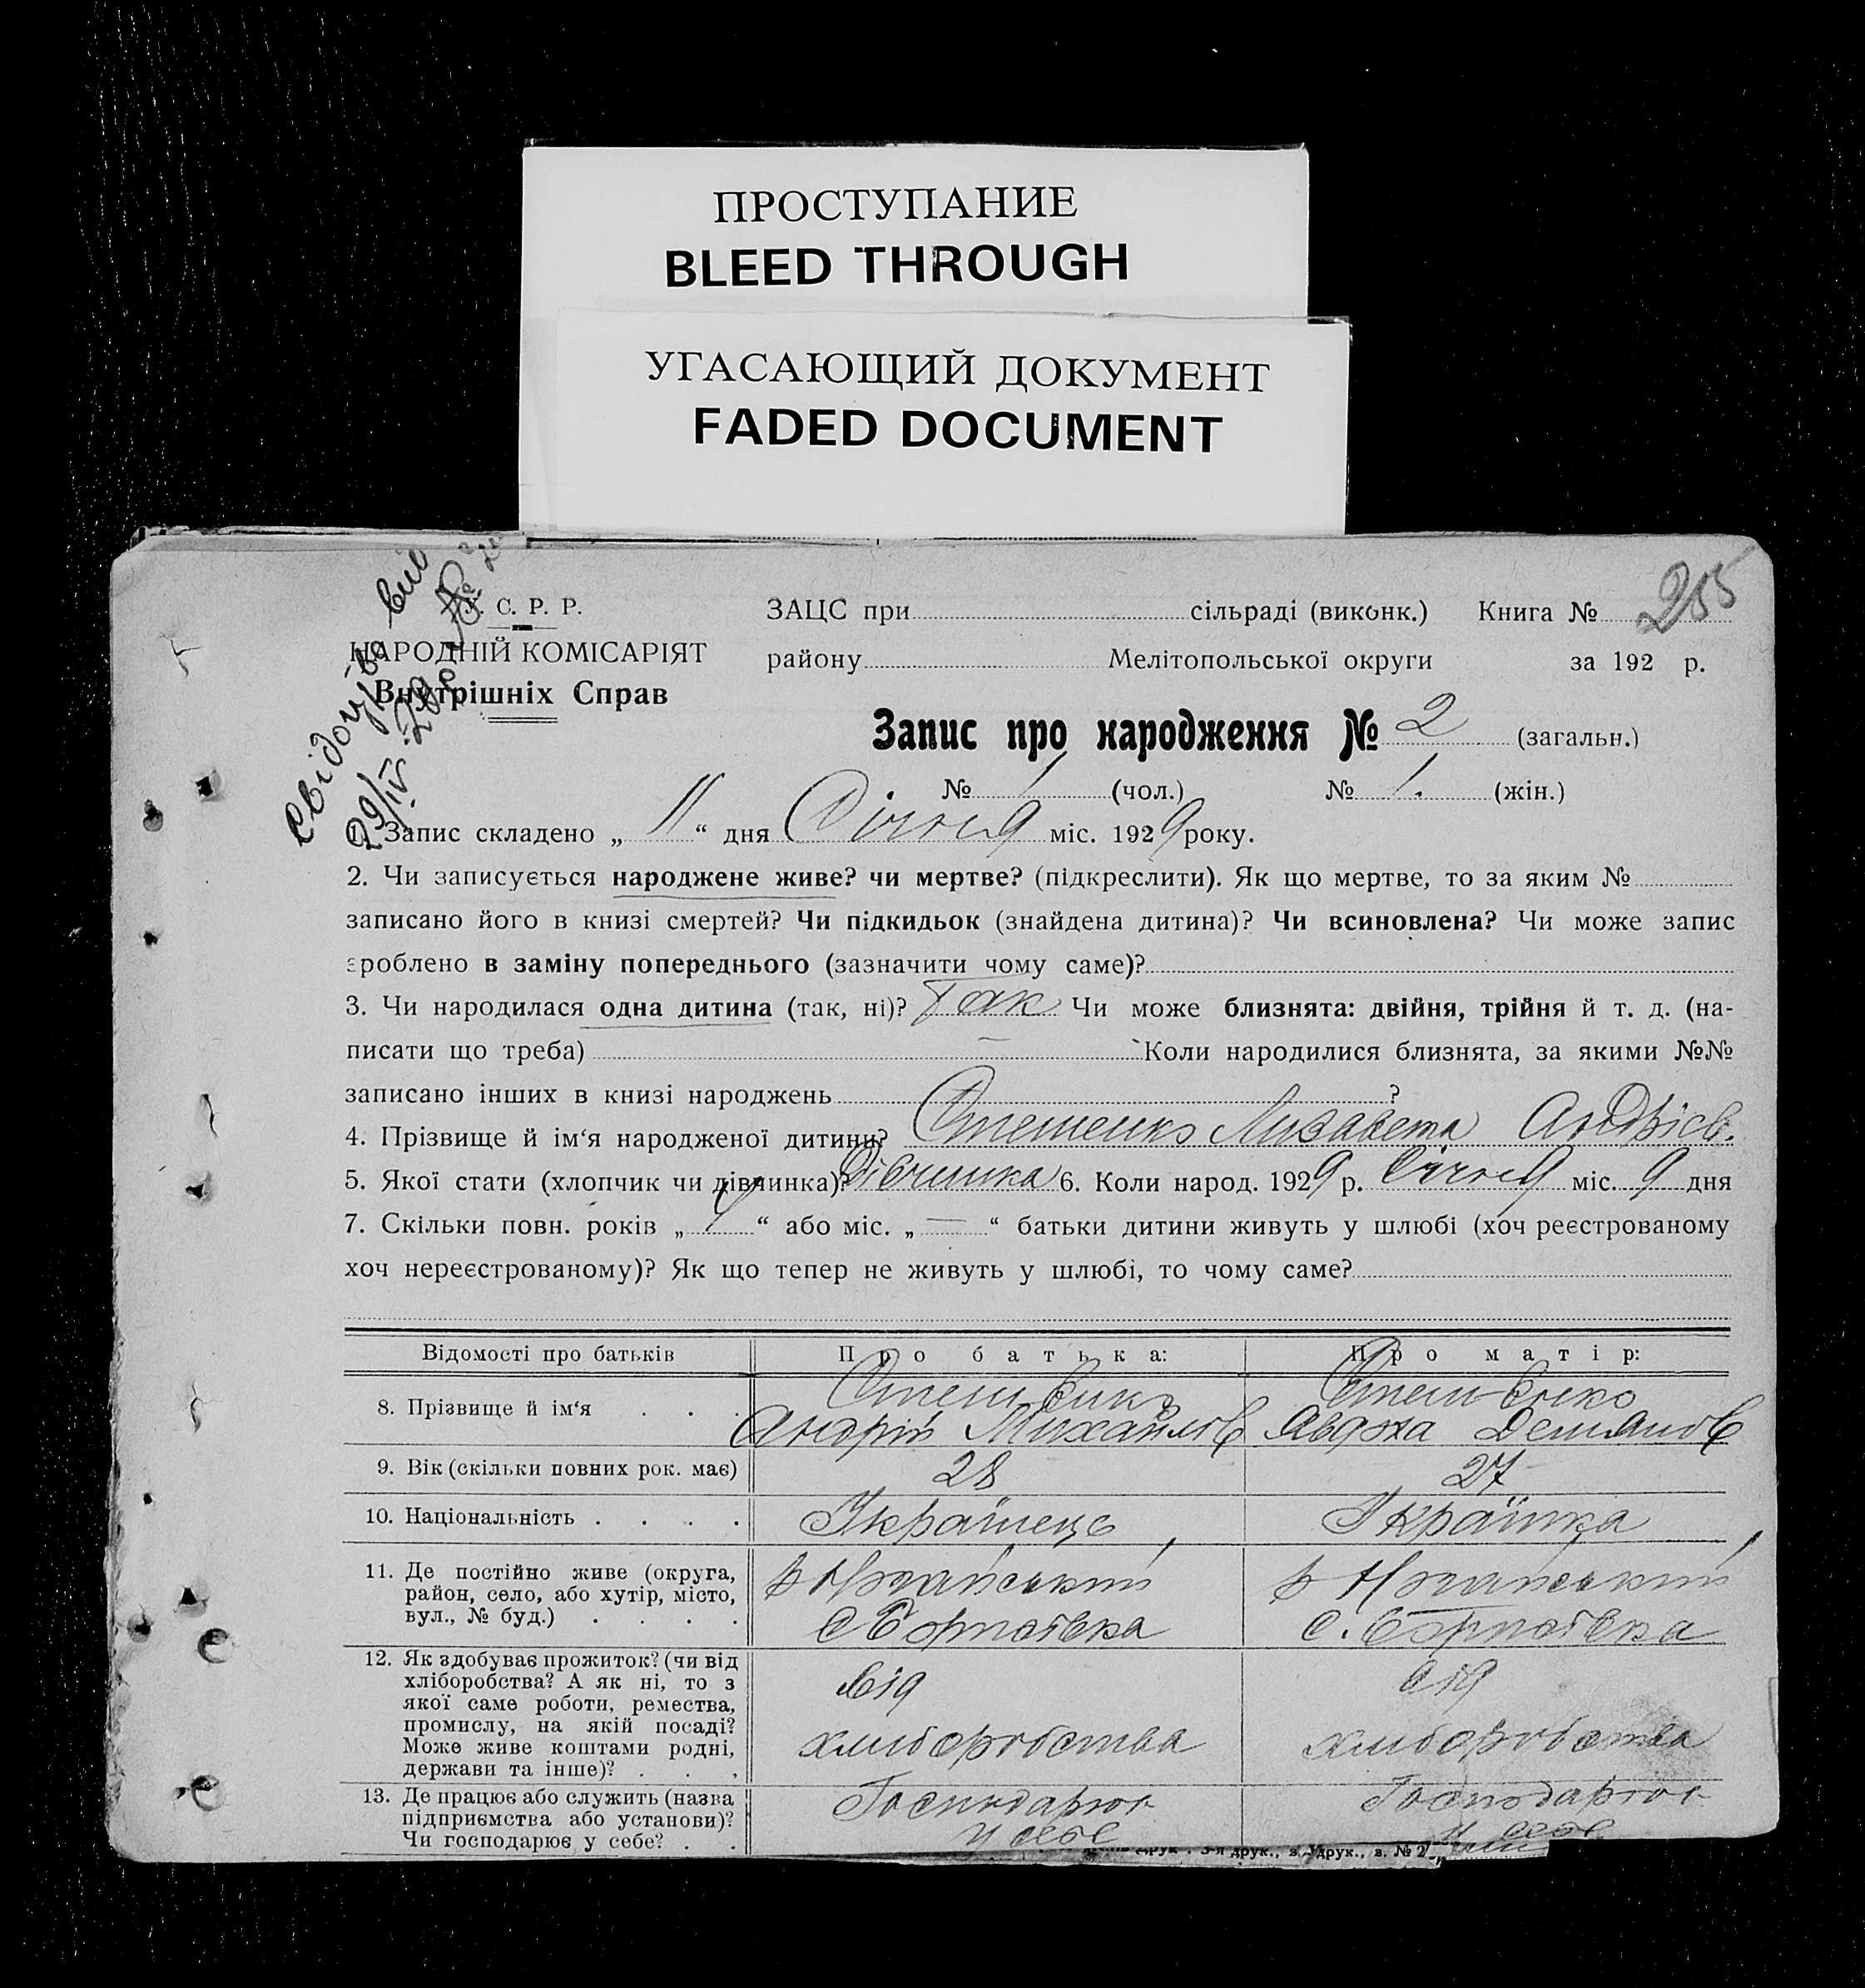 ПРОСТУПАНИЕ
BLEED THROUGH
УГАСАЮЩИЙ ДОКУМЕНТ
FADED DOCUMENT
255
Свідоцтво вид
29/IV
У. С. Р. Р.
НАРОДНІЙ КОМІСАРІЯТ
Внутрішніх Справ
ЗАЦС при сільраді (виконк.) Книга №
району Мелітопольської округи за 192 р.
Запис про народження № 2 (загальн.)
№ 1 (чол.) № 1. (жін.)
1. Запис складено „ 11 “ дня Січня міс. 1929 року.
2. Чи записується народжене живе? чи мертве? (підкреслити). Як що мертве, то за яким №
записано його в книзі смертей? Чи підкидьок (знайдена дитина)? Чи всиновлена? Чи може запис
зроблено в заміну попереднього (зазначити чому саме)?
3. Чи народилася одна дитина (так, ні)? Так Чи може близнята: двійня, трійня й т. д. (на-
писати що треба) — Коли народилися близнята, за якими №№
записано інших в книзі народжень ?
4. Прізвище й ім‘я народженої дитини? Стешенко Лизавета Андрієв.
5. Якої стати (хлопчик чи дівчинка)? Дівчинка 6. Коли народ. 1929 р. Січня міс. 9 дня
7. Скільки повн. років „ 9 “ або міс. „ — “ батьки дитини живуть у шлюбі (хоч реєстрованому
хоч нереєстрованому)? Як що тепер не живуть у шлюбі, то чому саме?
Відомості про батьків Про батька: Про матір:
8. Прізвище й ім‘я . . . Стешенко Стешенко
Андрій Михайлов Явдоха Демянов
9. Вік (скільки повних рок. має) 28 27
10. Національність . . . . Українець Українка
11. Де постійно живе (округа,
район, село, або хутір, місто,
вул., № буд.) . . . .
12. Як здобуває прожиток? (чи від
хліборобства? А як ні, то з
якої саме роботи, ремества,
промислу, на якій посаді?
Може живе коштами родні,
держави та інше)? . . .
Від Від
хлиборобства хлиборобства
13. Де працює або служить (назва
підприємства або установи)?
Чи господарює у себе? . .
Господарює Господарює
у себе у себе
друк., з. № 2